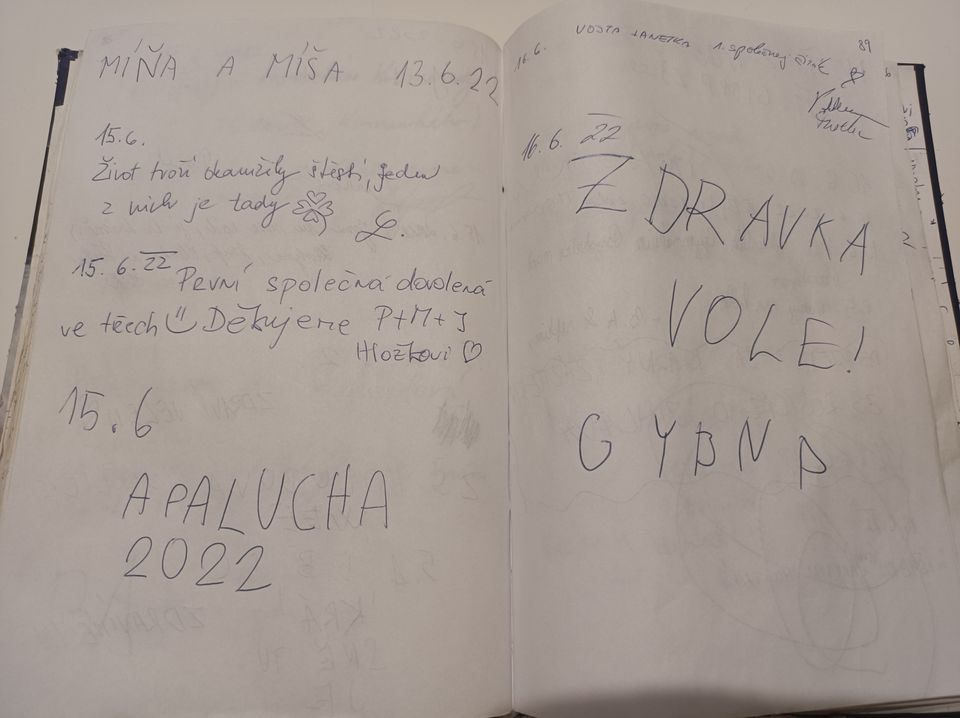 MÍŇA A MÍŠA 13.6.22
15.6.
Život tvoří okamžiky štěstí, jeden
z nich je tady
L.
15.6.22 První společná dovolená
ve třech Děkujeme P+M+J
Hložkovi
15.6
APALUCHA
2022
16.6. VOJTA + ANETKA 1. společnej
89
16.6.22
ZDRAVKA
VOLE!
GYBNP